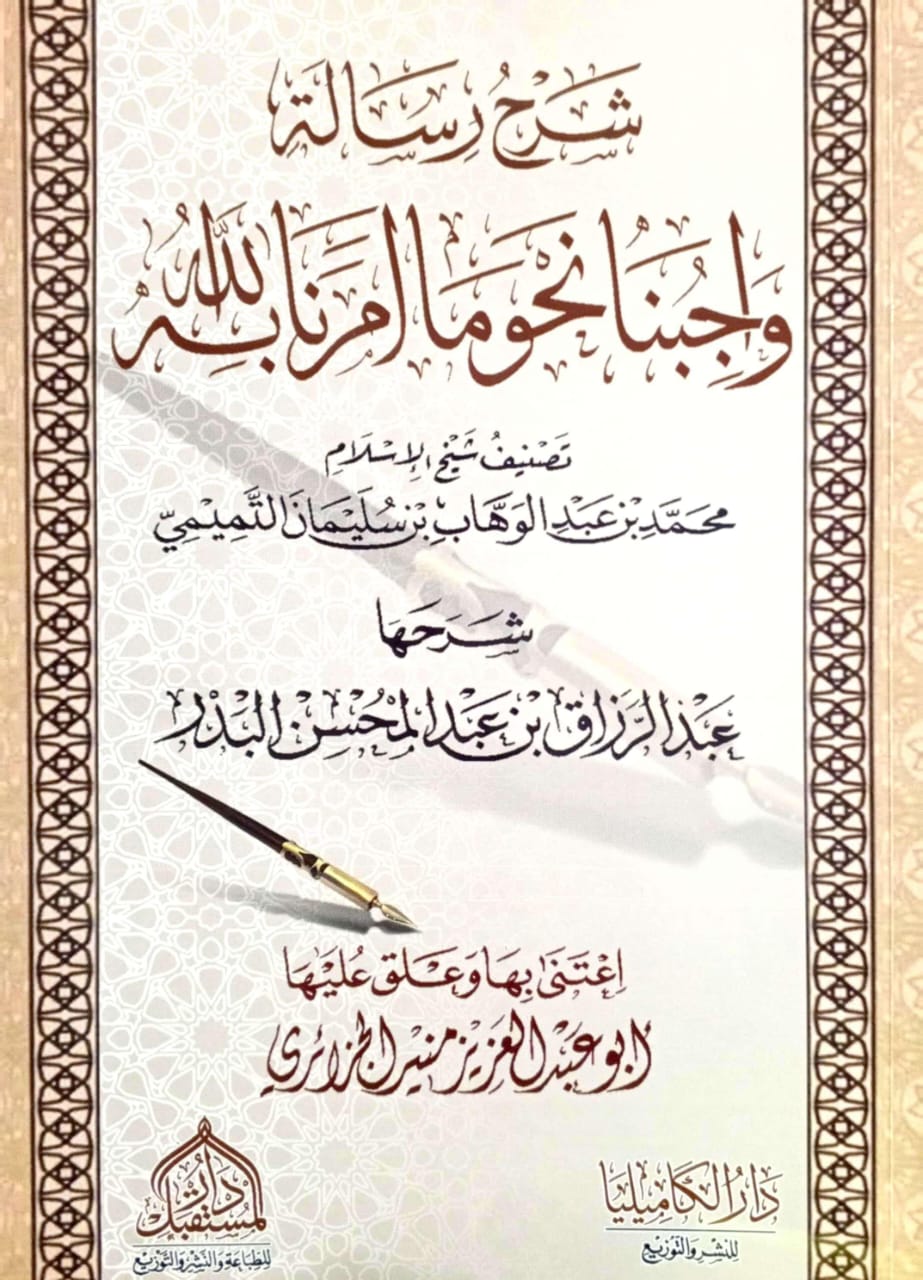 شَرْحُ رِسَالَةِ
وَاجِبُنَا نَحْوَ مَا أَمَرَنَا اللَّهُ بِهِ
تَصْنِيفُ شَيْخِ الإِسْلَامِ
مُحَمَّدِ بْنِ عَبْدِ الْوَهَّابِ بْنِ سُلَيْمَانَ التَّمِيْمِيِّ
شَرَحَهَا
عَبْدُ الرَّزَّاقِ بْنُ عَبْدِ الْمُحْسِنِ الْبَدْرُ
اِعْتَنَى بِهَا وَعَلَّقَ عَلَيْهَا
أبو عبد العزيز منير الجزائري
دَارُ الْكَامِيلِيَا
للنشر والتوزيع
دار المستقبل
للطباعة والنشر والتوزيع